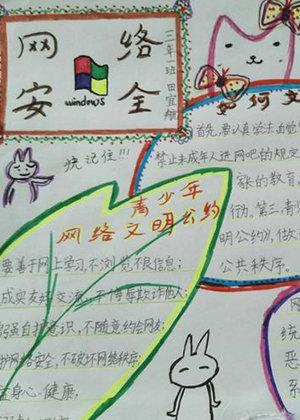 网络
安全
三年一班 田宜
windows
快记住!!!
如何文
首先,要认真学法,
禁止未成年人进网吧的规定
家的教育
行为。第三,青少
明公约》,做
公共秩序。
青少年
网络文明公约
要善于网上学习,不浏览不良信息;
成实友好交流,不侮辱欺诈他人;
强自护意识,不随意约会网友;
护网络安全,不破坏网络秩序;
身心健康,
统
恶
系